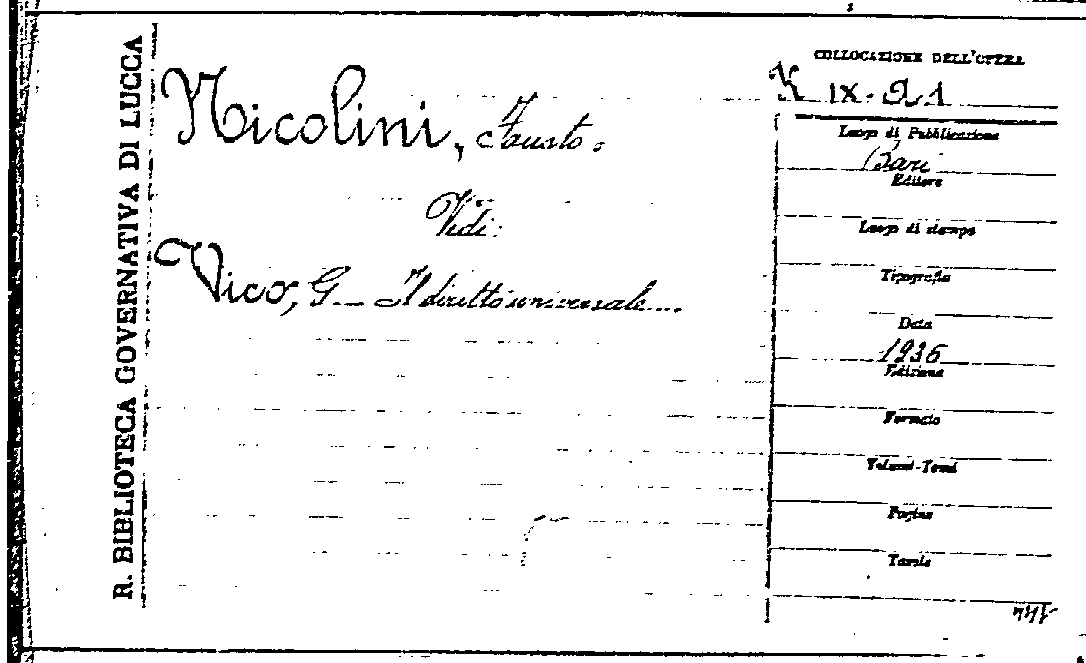 R. BIBLIOTECA GOVERNATIVA DI LUCCA
Nicolini, Fausto.
Vidi:
Vico, G. – Il diritto universale...
COLLOCAZIONE DELL'OPERA
K IX-91
Luogo di Pubblicazione
Bari
Editore
Luogo di stampa
Tipografia
Data
1936
Edizione
Formato
Volumi-Tomi
Pagine
Tavole